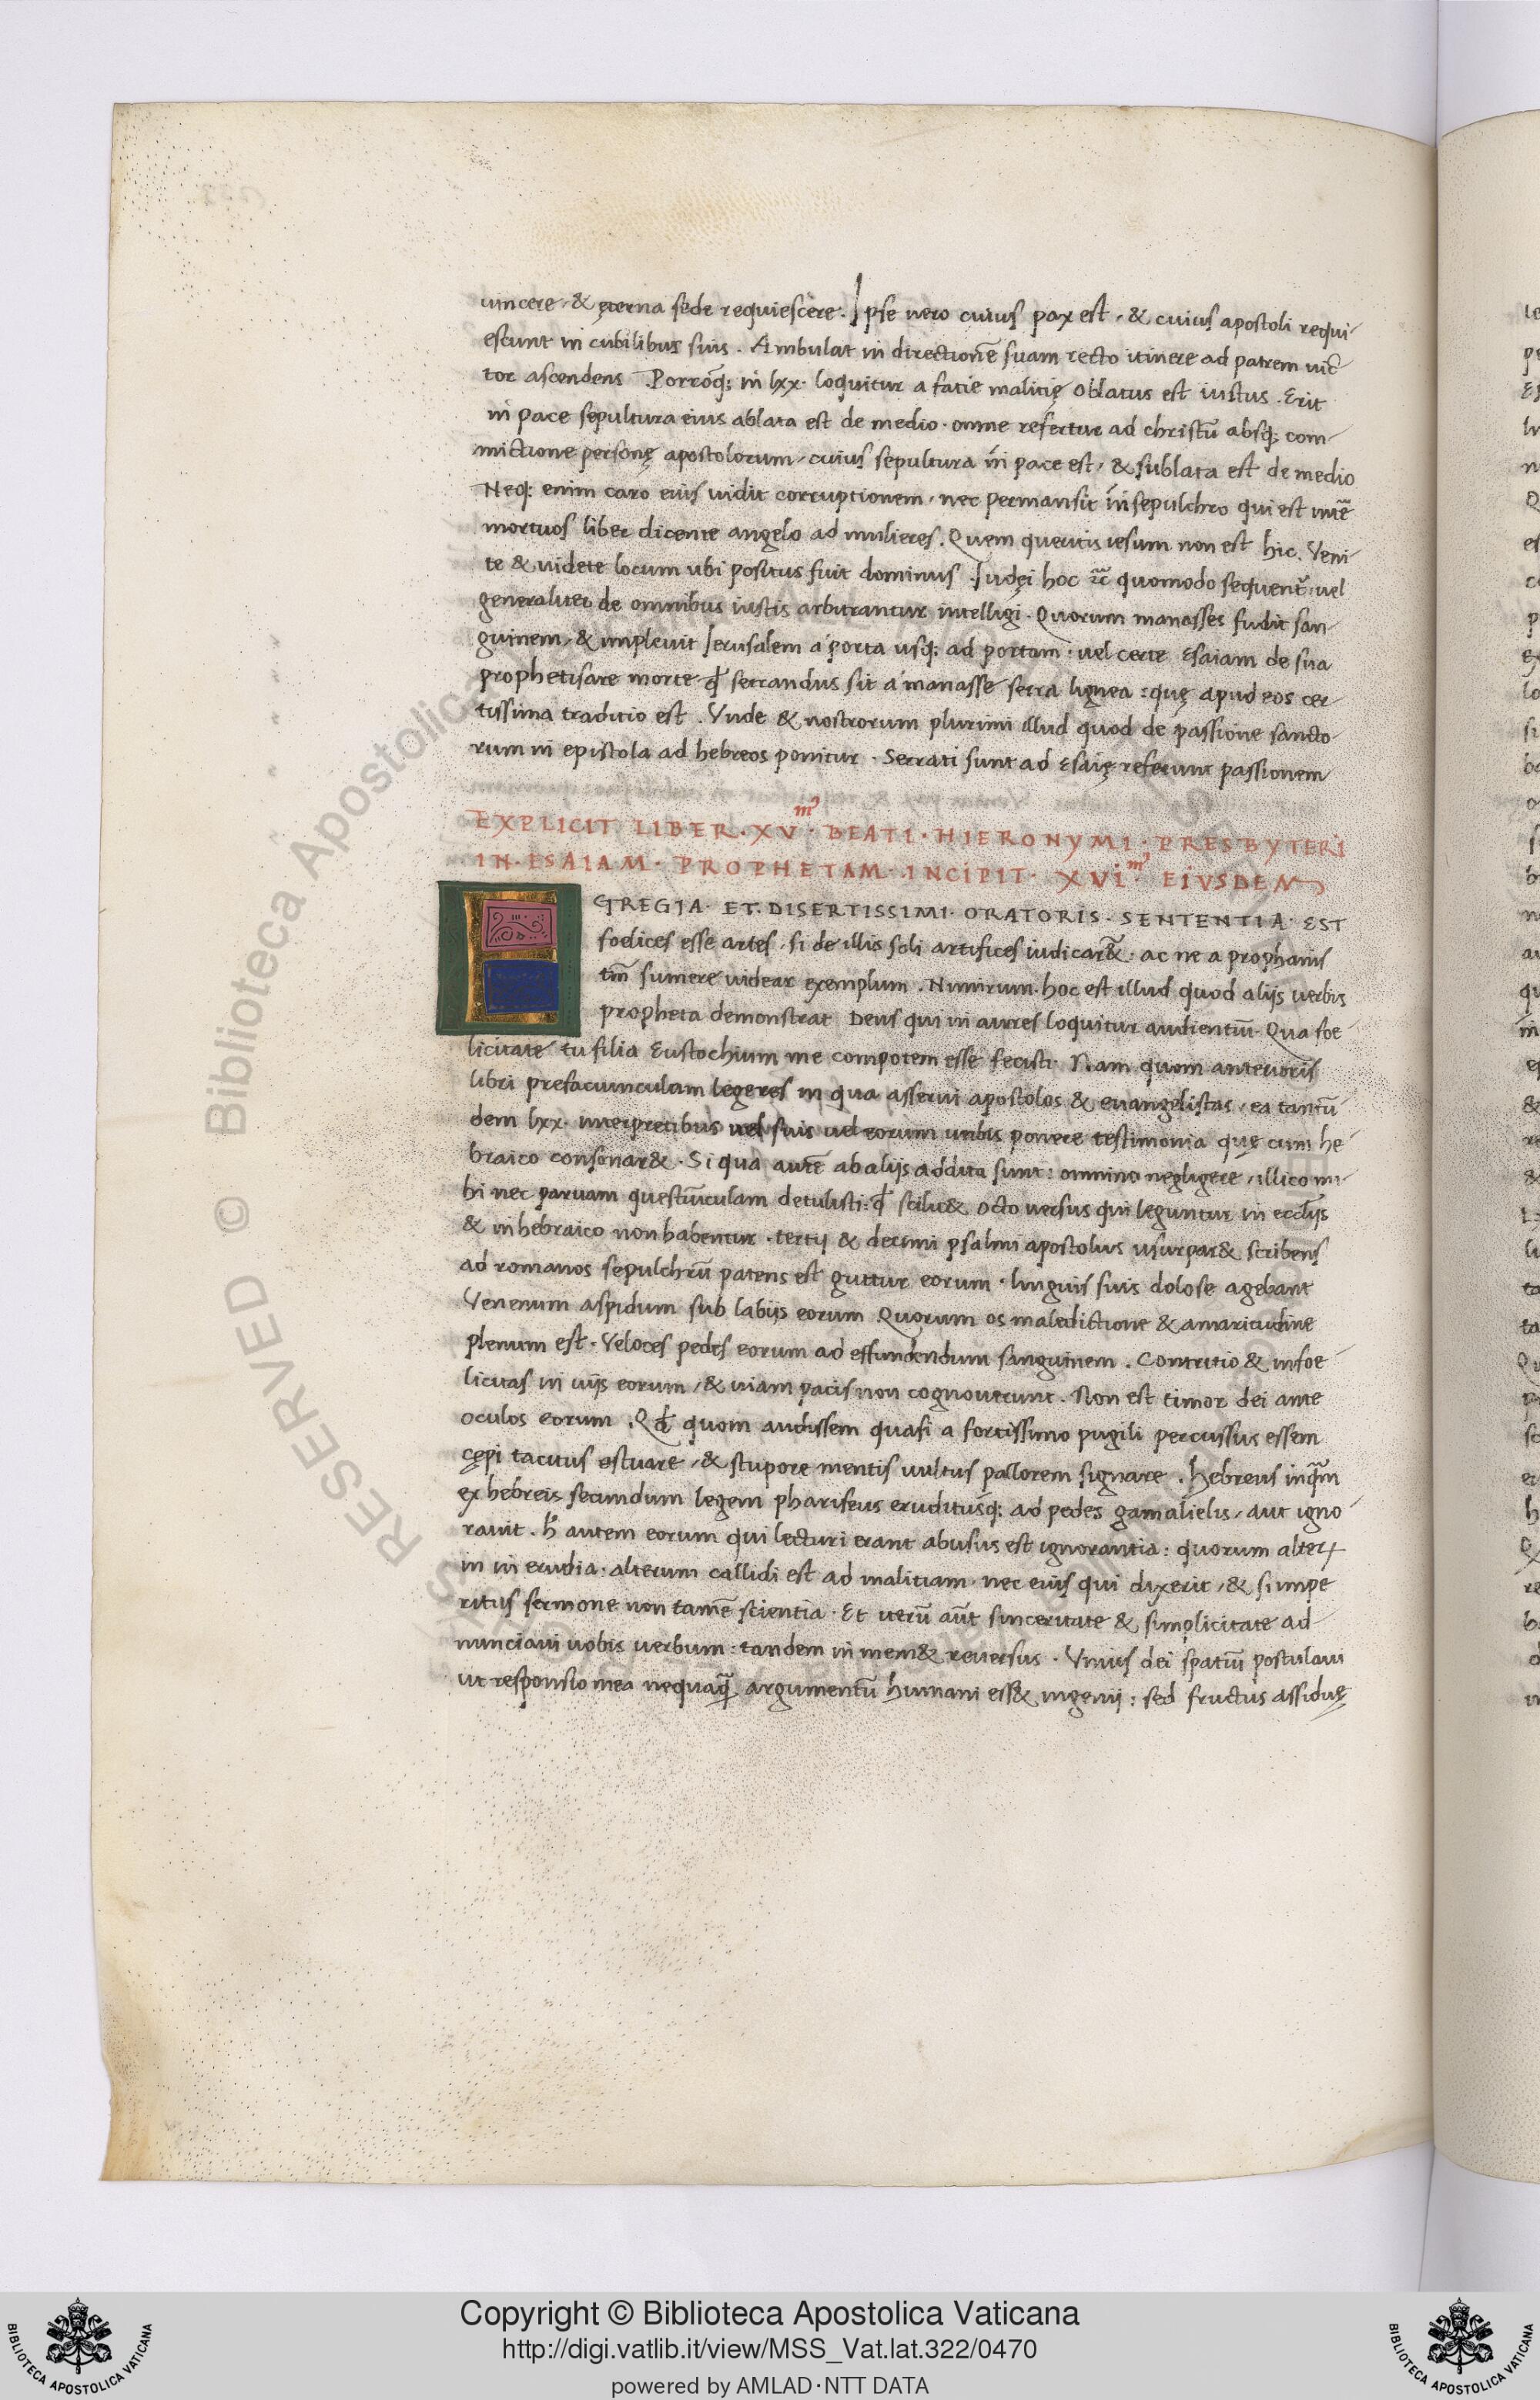 uincere, & ęterna sede requiescere. Ipse uero cuius pax est, & cuius apostoli requi-
escunt in cubilibus suis. Ambulat in directionē suam recto itinere ad patrem uic̄
tor ascendens. Porroq; in lxx. loquitur a facie malitię oblatus est iustus. Erit
in pace sepultura eius ablata est de medio. omne refertur ad christū absq; com-
mictione personę apostolorum, cuius sepultura in pace est, & sublata est de medio
Neq; enim caro eius uidit corruptionem, nec permansit in sepulchro qui est int̄e
mortuos liber dicente angelo ad mulieres. Quem queritis iesum non est hic. Veni-
te & uidete locum ubi positus fuit dominus. Iudęi hoc quomodo sequent̄: uel
generaliter de omnibus iustis arbitrantur intelligi. Quorum manasses fudit san-
guinem, & impleuit Ierusalem a porta usq; ad portam. uel certe Esaiam de sua
prophetisare morte ꝙ serrandus sit a manasse serra lignea: quę apud eos cer-
tissima traditio est. Vnde & nostrorum plurimi illud quod de passione sancto-
rum in epistola ad hebreos ponitur. Serrati sunt ad Esaię referunt passionem
EXPLICIT LIBER. XV.mꝰ BEATI. HIERONYMI. PRESBYTERI
IN. ESAIAM. PROPHETAM. INCIPIT. XVI.mꝰ EIVSDEM
EGREGIA. ET. DISERTISSIMI. ORATORIS. SENTENTIA. EST
foelices esse artes, si de illis soli artifices iudicar&. ac ne a prophanis
tm̄ sumere uidear exemplum. Nimirum. hoc est illud quod aliis uerbis
propheta demonstrat Deus qui in aurres loquitur audientiū. Qua foe-
licitate tu filia Eustochium me compotem esse fecisti. Nam quom anterioris
libri prefaciunculam legeres in qua asserui apostolos & euangelistas, ea tantū-
dem lxx. interpretibus uel suis uel eorum uerbis ponere testimonia quę cum he-
braico consonar&. Si qua autē ab aliis addita sunt: omnino negligere, illico mi-
hi nec paruam questiunculam detulisti: ꝙ scilic& octo uersus qui leguntur in eccl̄iis
& in hebraico non habentur. tertij & decimi psalmi apostolus usurpar& scribens
ad romanos sepulchrū patens est guttur eorum. linguis suis dolose agebant
Venenum aspidum sub labiis eorum Quorum os maledictione & amaritudine
plenum est. Veloces pedes eorum ad effundendum sanguinem. Contritio & infoe-
licitas in uiis eorum, & uiam pacis non cognouerunt. Non est timor dei ante
oculos eorum. Qd̄ quom audissem quasi a fortissimo pugili percussus essem
cępi tacitus estuare, & stupore mentis uultus pallorem signare. Hebreus inquā̄m
ex hebreis secundum legem phariseus eruditusq; ad pedes gamalielis, aut igno-
rauit. h̄ autem eorum qui lecturi erant abusus est ignorantia: quorum alterꝝ
in in erudia. alterum callidi est ad malitiam. nec eius qui dixerit, & si impe
ritus sermone non tamē scientia. Et uerū aūt sinceritate & simplicitate ad-
nunciaui uobis uerbum. tandem in mem& reuersus. Vnius dei spatiū postulaui
ut responsio mea nequaq̄ argumentū humani ess& ingenij: sed fructus assiduę
RESERVED © Biblioteca Apostolica
Copyright © Biblioteca Apostolica Vaticana
http://digi.vatlib.it/view/MSS_Vat.lat.322/0470
powered by AMLAD·NTT DATA
BIBLIOTECA APOSTOLICA VATICANA
BIBLIOTECA APOSTOLICA VATICANA